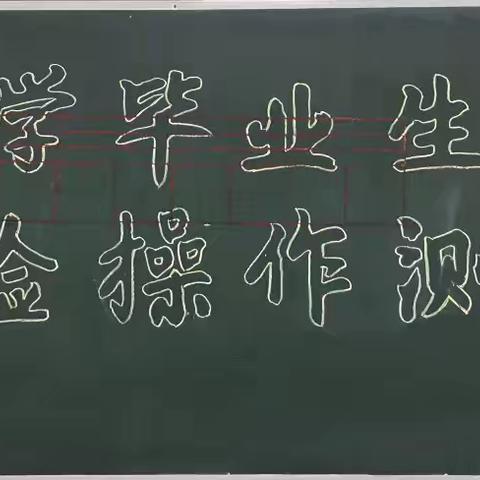 学毕业生
验操作测